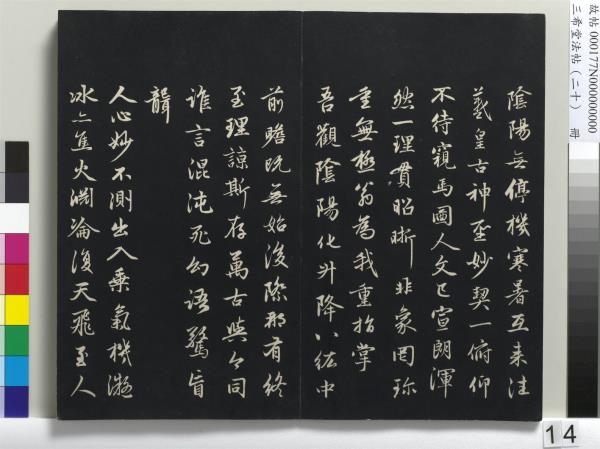 陰陽無停機寒暑互来往
羲皇古神聖妙契一俯仰
不待窺馬圖人文已宣朗渾
然一理貫昭晰非象罔珎
重無極翁為我重指掌
吾觀陰陽化升降八紘中
前瞻既無始後際那有終
至理諒斯存萬古與今同
誰言混沌死幻語驚盲
聾
人心妙不測出入乗氣機凝
冰亦焦火淵淪復天飛至人
故帖 000177N000000000
三希堂法帖（二十） 冊
14